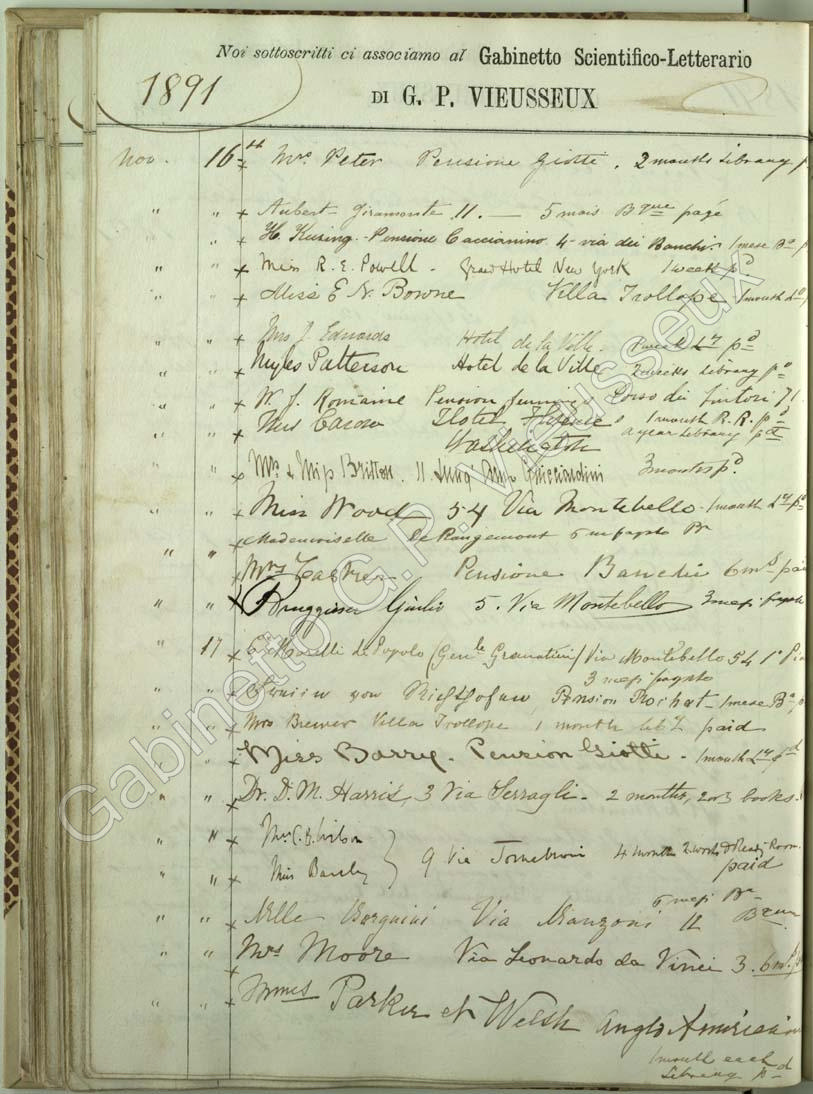 Noi sottoscritti ci associamo al Gabinetto Scientifico-Letterario
1891
DI G. P. VIEUSSEUX
Nov. 16th + Mrs. Peter Pensione Giotti. 2 months Library
" " + Aubert - Giramonte 11. — 5 mois Bque payé
" " + H. Kusing - Pensione Caccianino 4 via dei Banchi - 1 mese Bca
" " + Miss R. E. Powell - Grand Hotel New York 1 week pd
" " + Miss E N. Bowne Villa Trollope - 1 month
" " + Mrs J. Edwards Hotel de la Ville. 1 week Ly pd
" " + Myles Patterson Hotel de la Ville 2 weeks Library pd
" " + W. J. Romaine Pension Corso dei Tintori 71
" " + Miss Hotel 1 month R.R. pd
Washington a year Library pd
" " + Mrs & Miss Britton. 11 Lung Arno Guicciardini 3 months pd
" " + Miss Wood 54 Via Montebello - 1 month Ly pd
" " + Mademoiselle de Rougemont 6 m
Mrs Pensione Banchi 6 ms paid
" " + Giulio 5. Via Montebello 3 mesi
" 17 + Morelli di Popolo (Genle Granatini) Via Montebello 54 1o
3 mesi
" " + von Richthofen, Pension Rochat - 1 mese Bca
" " + Mrs Brewer Villa Trollope 1 month paid
" " + Miss Barry - Pension Giotti - 1 month Ly pd
" " + Dr. D. M. Harris, 3 Via Serragli - 2 months, 2 or 3 books.
" " + Mrs C. B. Wilson
9 Via Tornabuoni 4 months 2 works & Readg Room
paid
" " + Miss
6 mesi
" " + Mlle Via Manzoni 12
" " + Mrs Moore Via Leonardo da Vinci 3. 6 ms
" " + Mmes Parker et Welsh Anglo American
1 month each
Library pd
Gabinetto G.P. Vieusseux